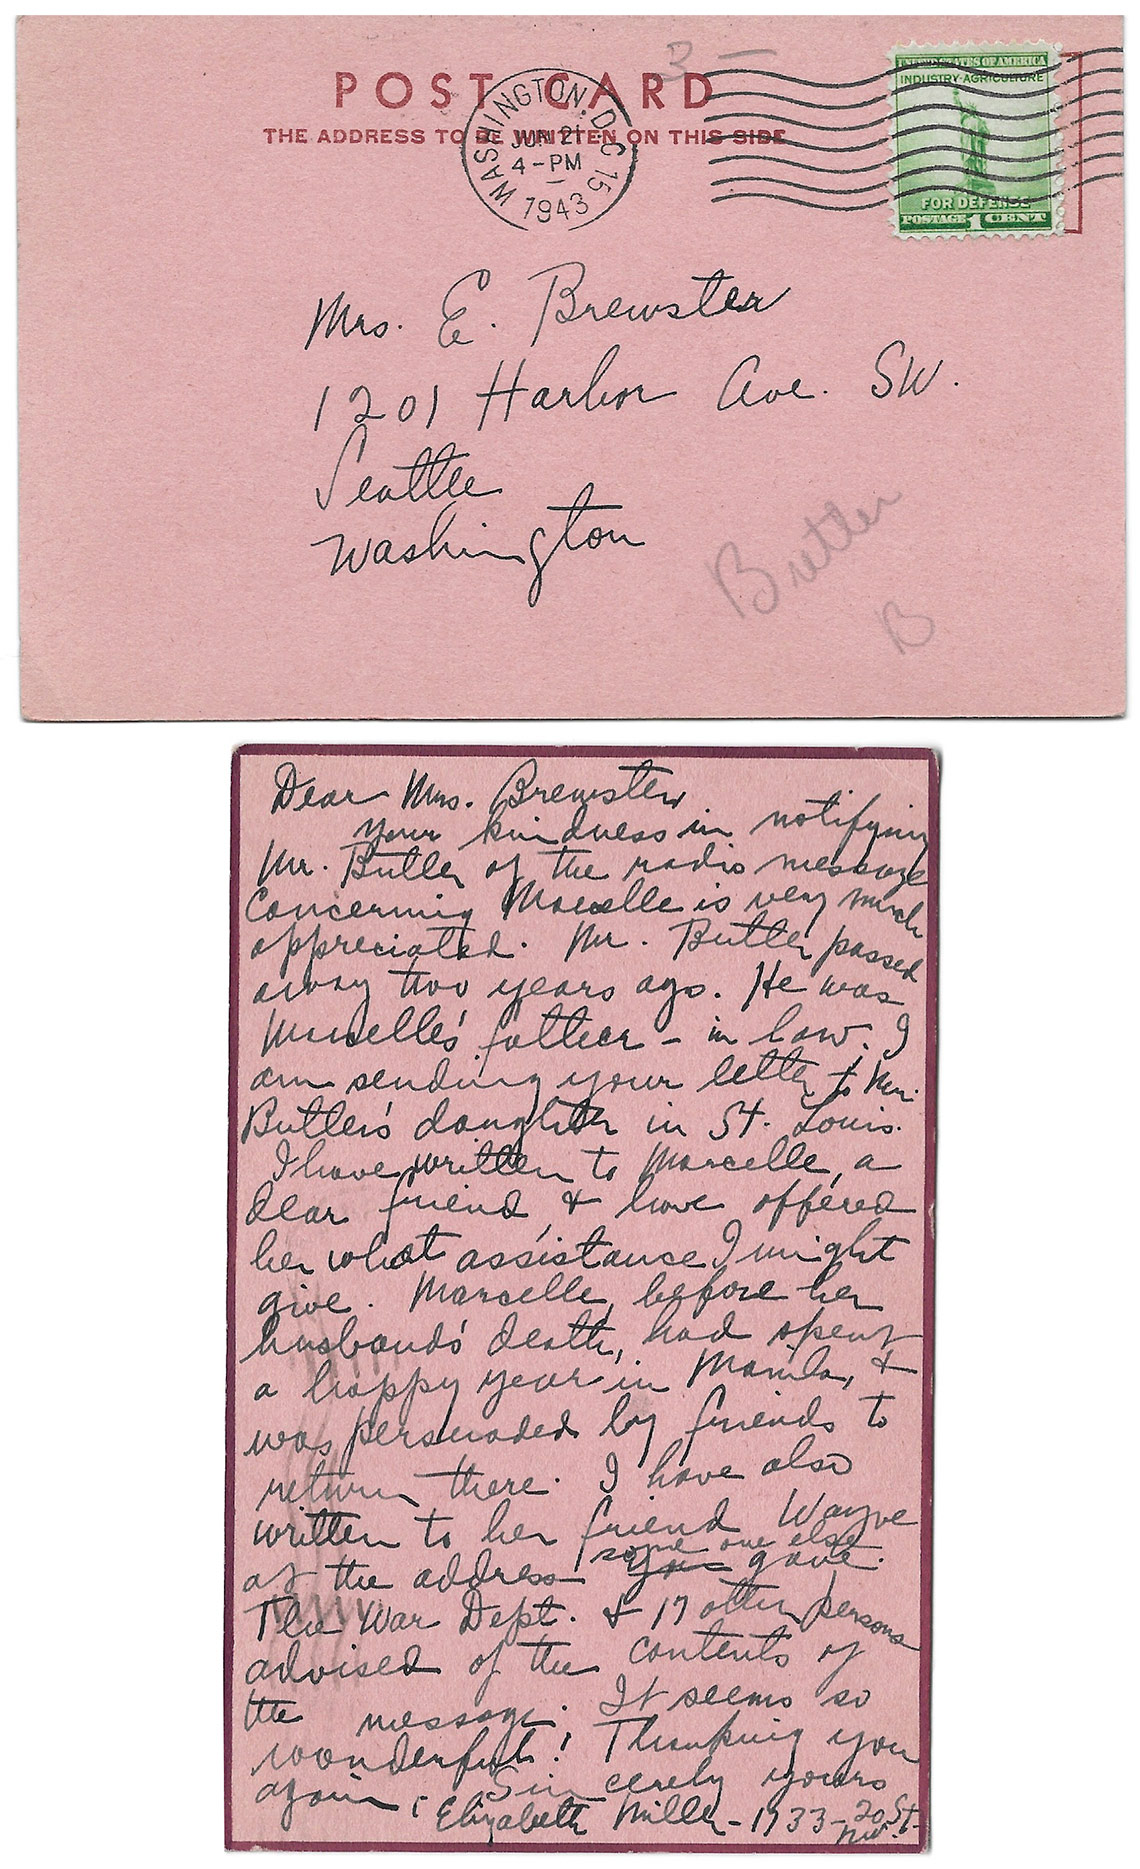 3 —
POST CARD
THE ADDRESS TO BE WRITTEN ON THIS SIDE
WASHINGTON, D.C. 15
JUN 21
4-PM
1943
UNITED STATES OF AMERICA
INDUSTRY-AGRICULTURE
FOR DEFENSE
POSTAGE 1 CENT
Mrs. E. Brewster
1201 Harbor Ave. SW.
Seattle
Washington
B
Dear Mrs. Brewster,
Your kindness in notifying
Mr. Butler of the radio message
concerning Marcelle is very much
appreciated. Mr. Butler passed
away two years ago. He was
Marcelle's father-in law. I
am sending your letter to Mr.
Butler's daughter in St. Louis.
I have written to Marcelle, a
dear friend, & have offered
her what assistance I might
give. Marcelle, before her
husband's death, had spent
a happy year in Manila, &
was persuaded by friends to
return there. I have also
written to her friend Wayne
at the address some one else gave.
The War Dept. & 17 other persons
advised of the contents of
the message. It seems so
wonderful! Thanking you
again, Sincerely yours
Elizabeth Miller - 1733 - 20 St.
NW.